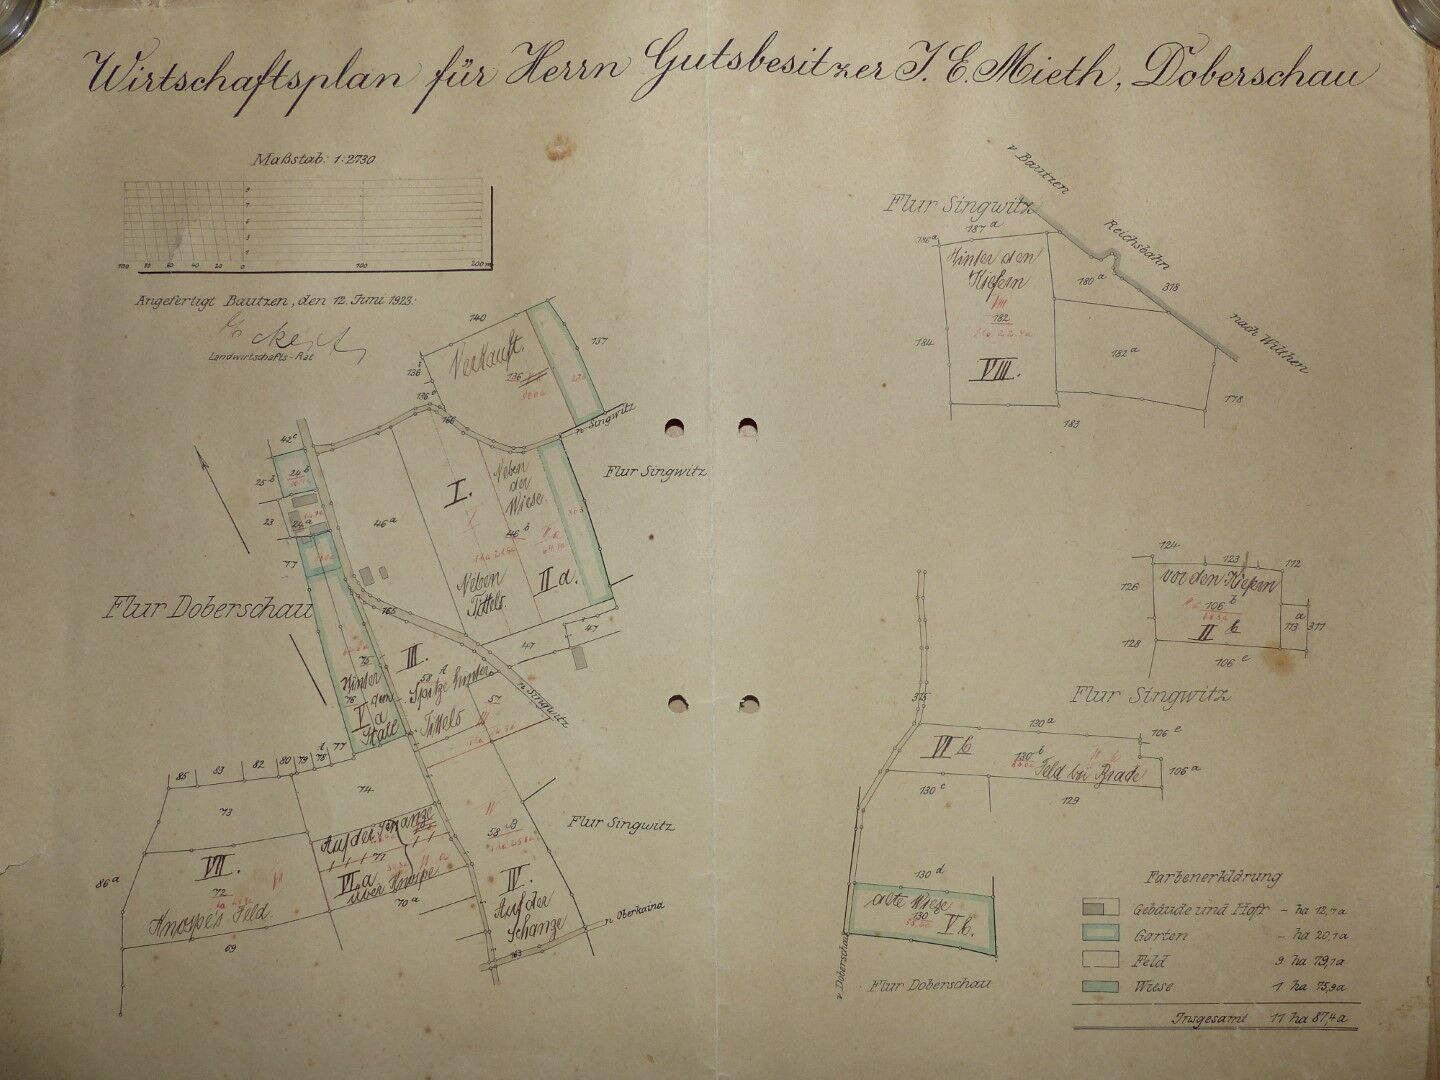 Wirtschaftsplan für Herrn Gutsbesitzer J. E. Mieth, Doberschau
Maßstab: 1:2730
9
7
5
3
1
100 80 60 40 20 0 100 200 m
Angefertigt Bautzen, den 12. Juni 1923.
Landwirtschafts-Rat
140
Verkauft.
136
137
136 b
166
n. Singwitz
Flur Singwitz
42 c
25 b
24 b
23
24 a
77
46 a
I.
Neben
der
Wiese
46 b
II a.
Neben
Tittels.
Flur Doberschau
165
47
47
III.
58 A
Spitze hinter
Tittels
57
n. Singwitz
75
Hinter
76
dem
V
a
Stall
85 83 82 80 79 78 77
74
73
Auf der Schanze
71
VI a
über Knospe
70 a
VII.
72
Knospe's Feld
86 a
69
58 B
IV.
Auf der
Schanze
163
n. Oberkaina
Flur Singwitz
v. Bautzen
Flur Singwitz
Reichsbahn
187 a
186 a
Hinter den
Kiefern
182
VIII.
184
180 a
318
182 a
nach Wilthen
178
183
124
123
112
126
vor den Kiefern
106 b
II b
a
113
311
128
106 e
Flur Singwitz
315
130 a
106 e
VI b
130 b
Feld bei Rade
106 a
130 c
129
130 d
alte Wiese
130
V b.
v. Doberschau
Flur Doberschau
Farbenerklärung
Gebäude und Hoff - ha 12,7a
Garten - ha 20,1a
Feld 9 ha 79,1a
Wiese 1 ha 75,9a
Insgesamt 11 ha 87,4a